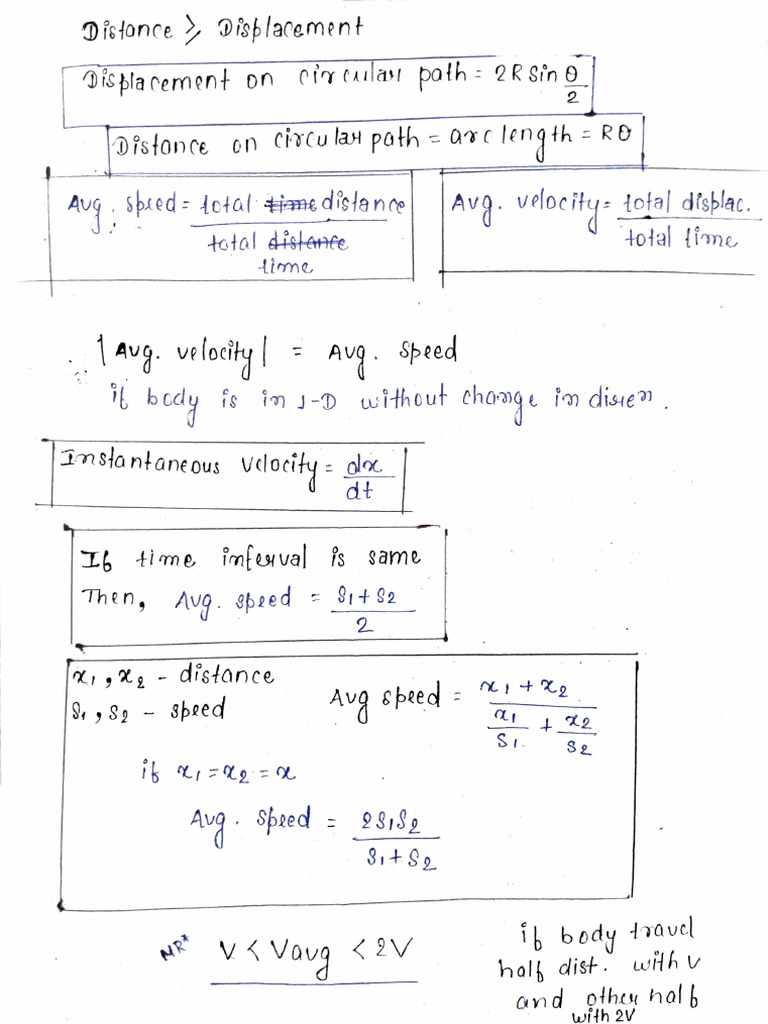 Distance ⩾ Displacement
Displacement on circular path = 2R Sin θ/2
Distance on circular path = arc length = Rθ
Avg. speed = total ~~time~~ distance / total ~~distance~~ time
Avg. velocity = total displac. / total time
|Avg. velocity| = Avg. speed
if body is in 1-D without change in diren.
Instantaneous velocity = dx/dt
If time interval is same
Then, Avg. speed = (S₁ + S₂)/2
x₁, x₂ - distance
S₁, S₂ - speed
Avg speed = (x₁ + x₂)/(x₁/S₁ + x₂/S₂)
if x₁ = x₂ = x
Avg. speed = 2S₁S₂/(S₁ + S₂)
MR* V < Vavg < 2V
if body travel
half dist. with v
and other half
with 2V